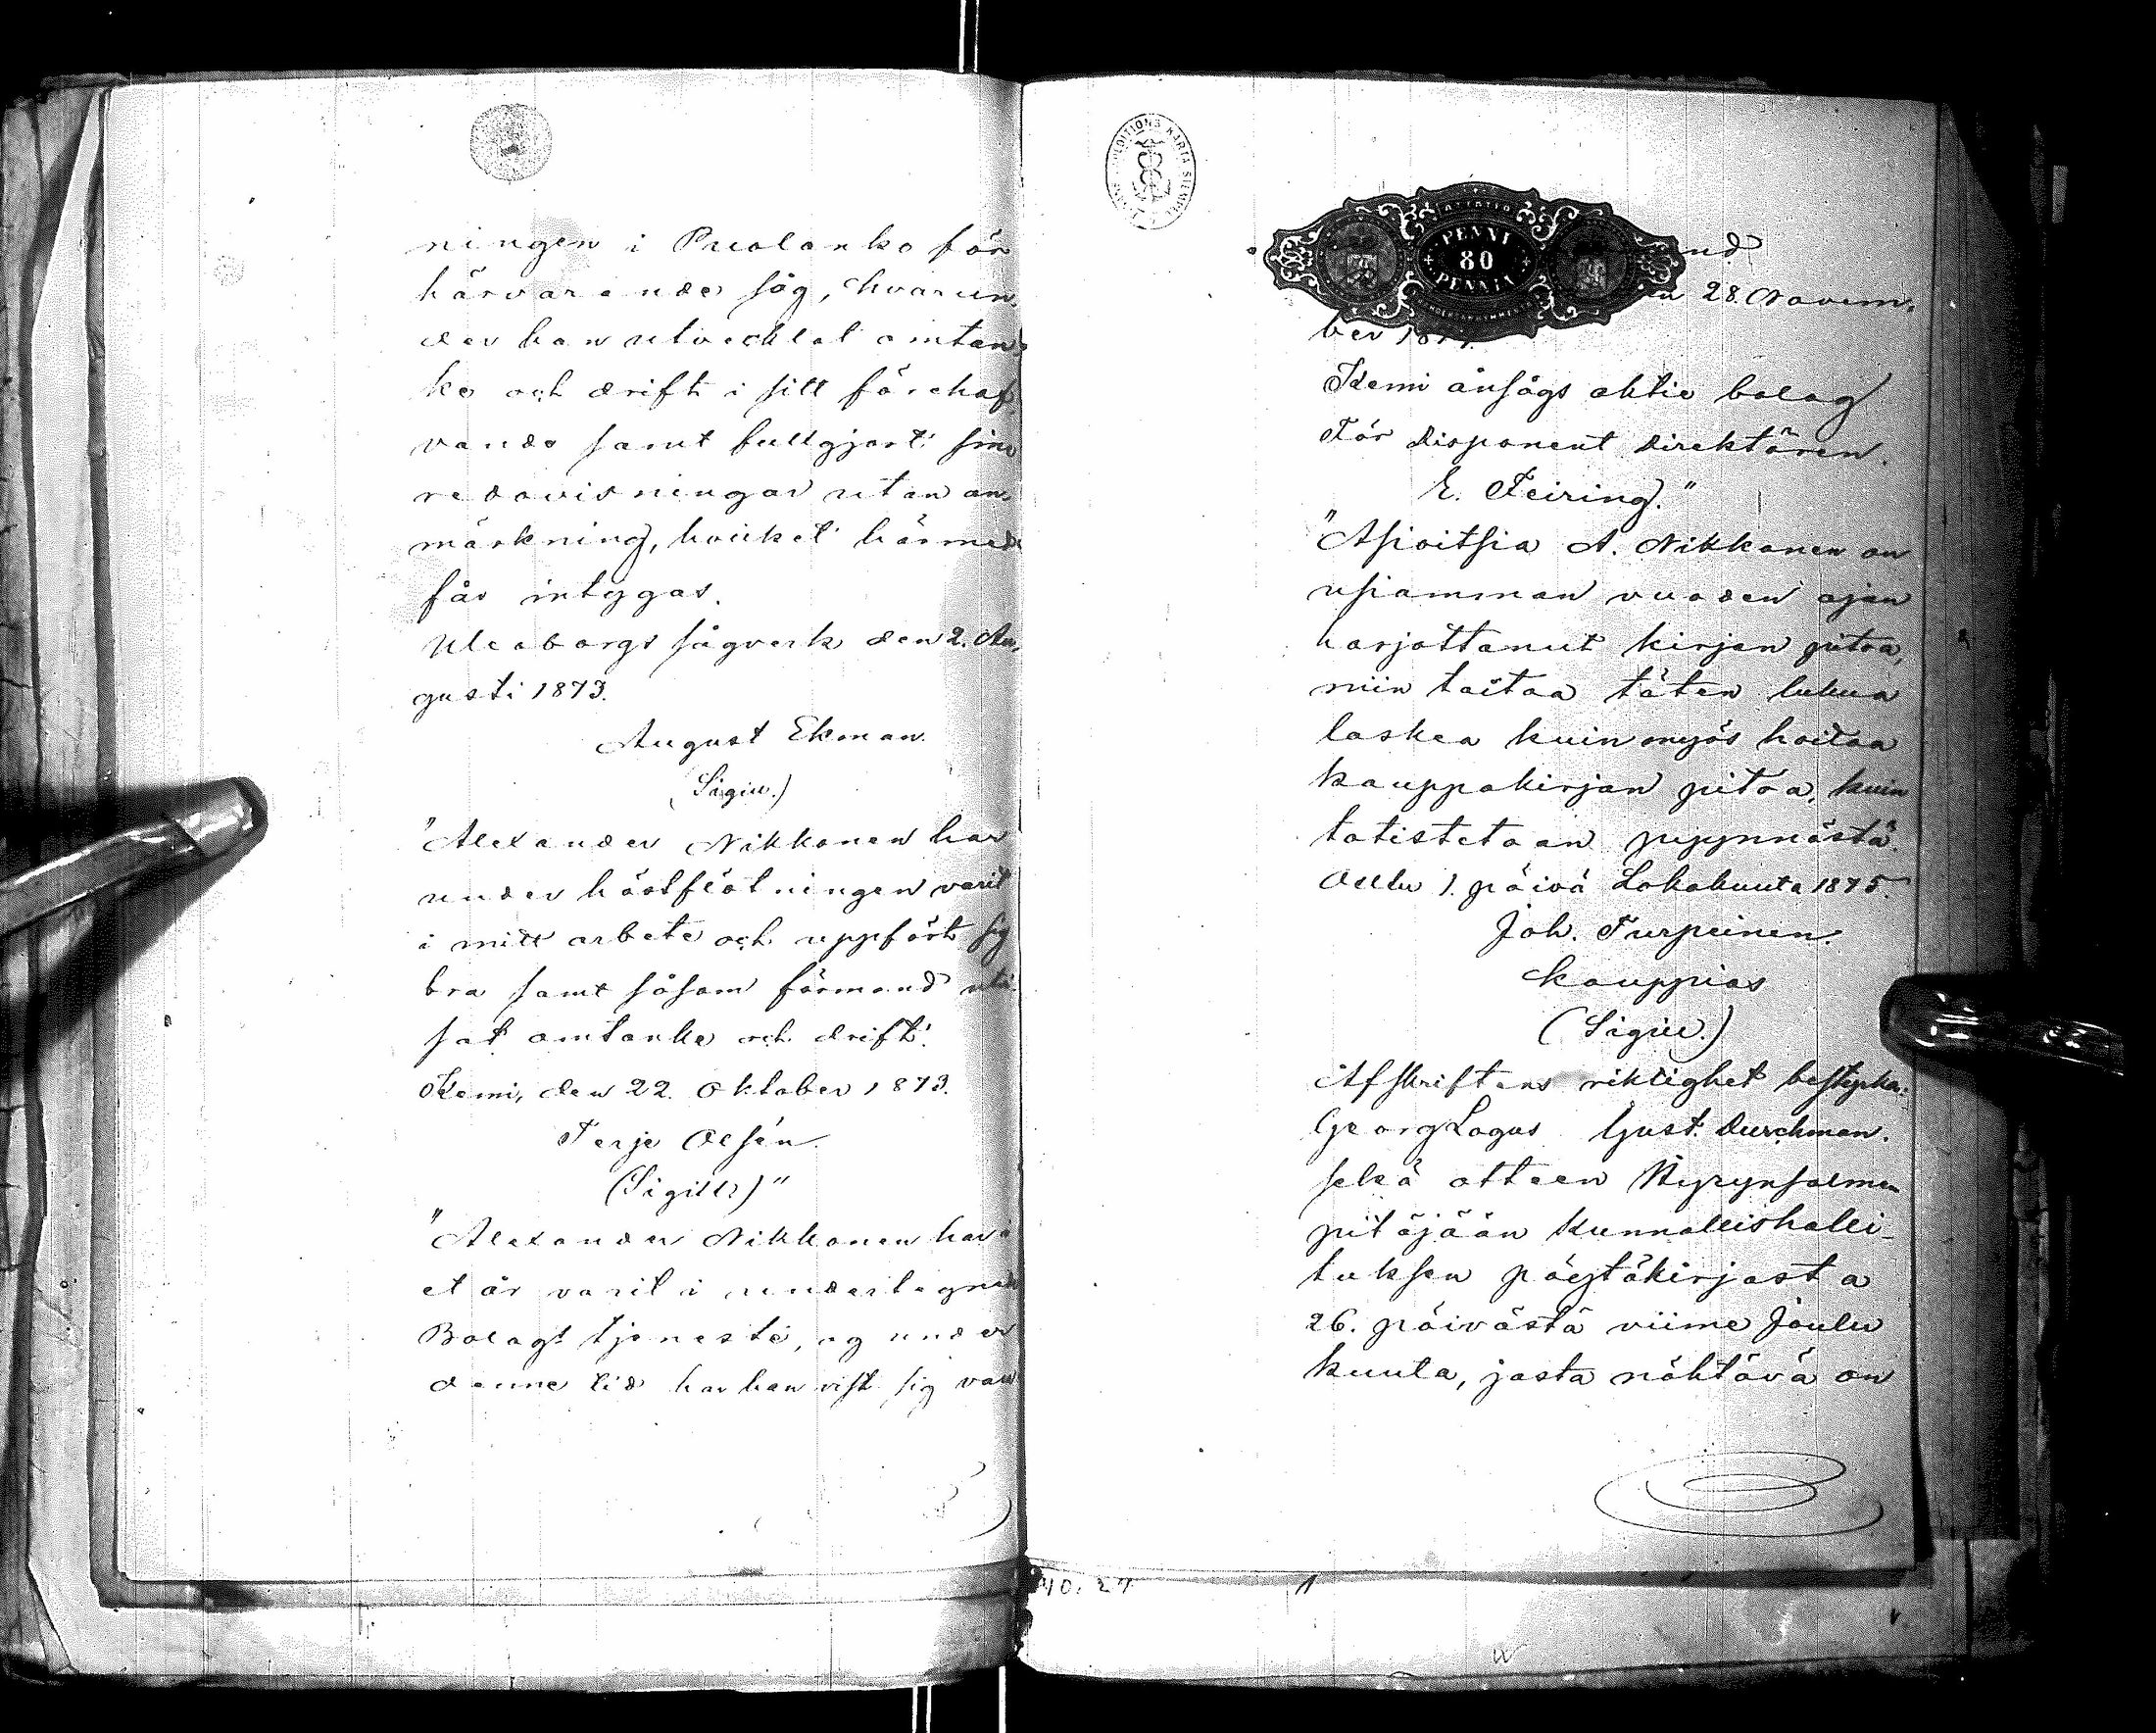 ningen i Puolanko för
härvarande såg, hvarun-
der han utvecklat omtan-
ke och drift i sitt förehaf-
vande samt fullgjort sina
redovisningar utan an-
märkning, hvilket härmed
får intygas.
Uleåborgs sågverk den 2. Au-
gusti 1873.
August Ekman.
(Sigill.)
"Alexander Nikkonen har
under höstflötningen varit
i mitt arbete och uppfört sig
bra samt såsom förmand uti-
sat omtanke och drift.
Kemi, den 22. Oktober 1873.
Terje Olsén.
(Sigill)"
"Alexander Nikkonen har i
et år varit i undertegnede
Bolags tjeneste, og under
denne tid har han vist sig
EXPEDITIONS KARTA STEMPEL
PENNI
80
PENNIÄ
28. Novem-
ber 187
Kemi ångsågs aktie bolag
För disponent direktören.
E. Feiring."
"Asioitsia A. Nikkonen on
usiamman vuoden ajan
harjottanut kirjan pitoa,
niin taitaa täten lukua
laskea kuin myös hoitaa
kauppakirjan pitoa, kuin
totistetaan pyynnöstä.
Oulu 1. päivä Lokakuuta 1875.
Joh. Turpeinen.
Kauppias
(Sigill.)
Afskriftens riktighet bestyrka:
Georg Lagus Gust. Durchman.
sekä otteen Hyrynsalmen
pitäjään kunnallishalli-
tuksen pöytäkirjasta
26. päivästä viime Joulu
kuuta, josta nähtävä on
NO. 27